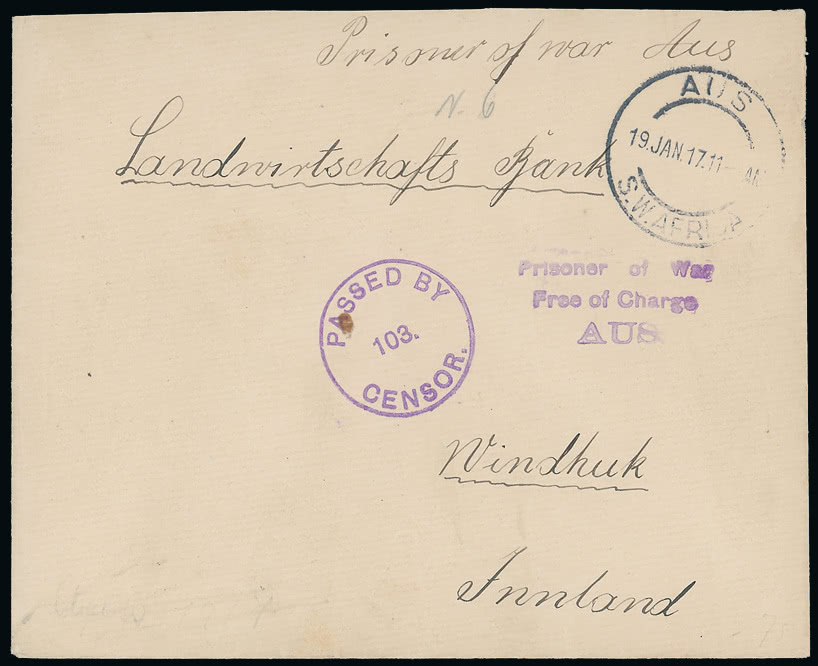 Prisoner of war Aus
N. 6
Landwirtschafts Bank
AUS
19.JAN.17.11- AM
S.W.AFRICA
Prisoner of War
Free of Charge
AUS
PASSED BY
103.
CENSOR.
Windhuk
Innland